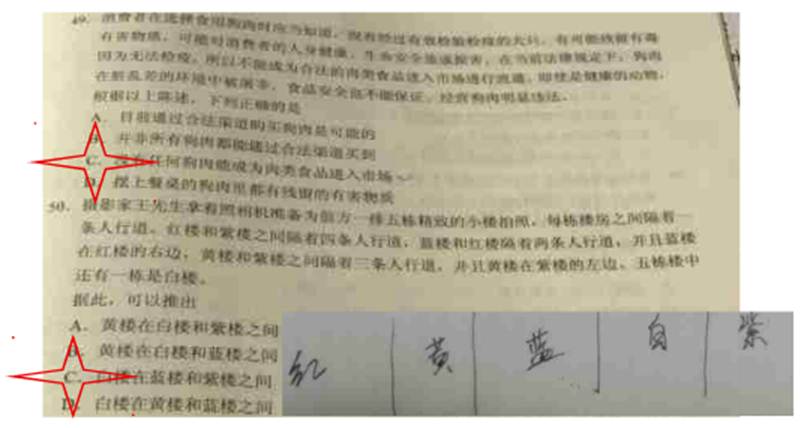 49. 消费者在选择食用狗肉时应当知道，没有经过有效检验检疫的犬只，有可能残留有毒
有害物质，可能对消费者的人身健康、生命安全造成损害，在当前法律规定下，狗肉
因为无法检疫，所以不能成为合法的肉类食品进入市场进行流通，即使是健康的动物，
在脏乱差的环境中被屠宰，食品安全也不能保证，经营狗肉明显违法。
根据以上陈述，下列正确的是
A. 目前通过合法渠道购买狗肉是可能的
B. 并非所有狗肉都能通过合法渠道买到
C. 没有任何狗肉能成为肉类食品进入市场
D. 摆上餐桌的狗肉里都有残留的有害物质
50. 摄影家王先生拿着照相机准备为前方一排五栋精致的小楼拍照，每栋楼房之间隔着一
条人行道。红楼和紫楼之间隔着四条人行道，蓝楼和红楼隔着两条人行道，并且蓝楼
在红楼的右边，黄楼和紫楼之间隔着三条人行道，并且黄楼在紫楼的左边。五栋楼中
还有一栋是白楼。
据此，可以推出
A. 黄楼在白楼和紫楼之间
B. 黄楼在白楼和蓝楼之间
C. 白楼在蓝楼和紫楼之间
D. 白楼在黄楼和蓝楼之间
红 黄 蓝 白 紫